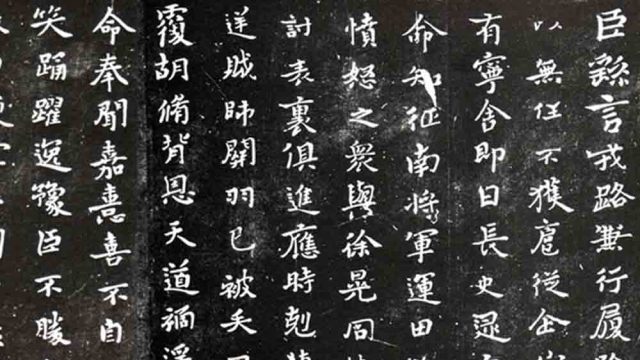 臣繇言戎路兼行履險
以無任不獲扈從企
有寧舍即日長史逯
命知征南將軍運田
憤怒之衆與徐晃同
討表裏俱進應時剋
逆賊帥關羽已被矢
覆胡脩背恩天道禍淫
命奉聞嘉憙喜不自
笑踊躍逸豫臣不勝